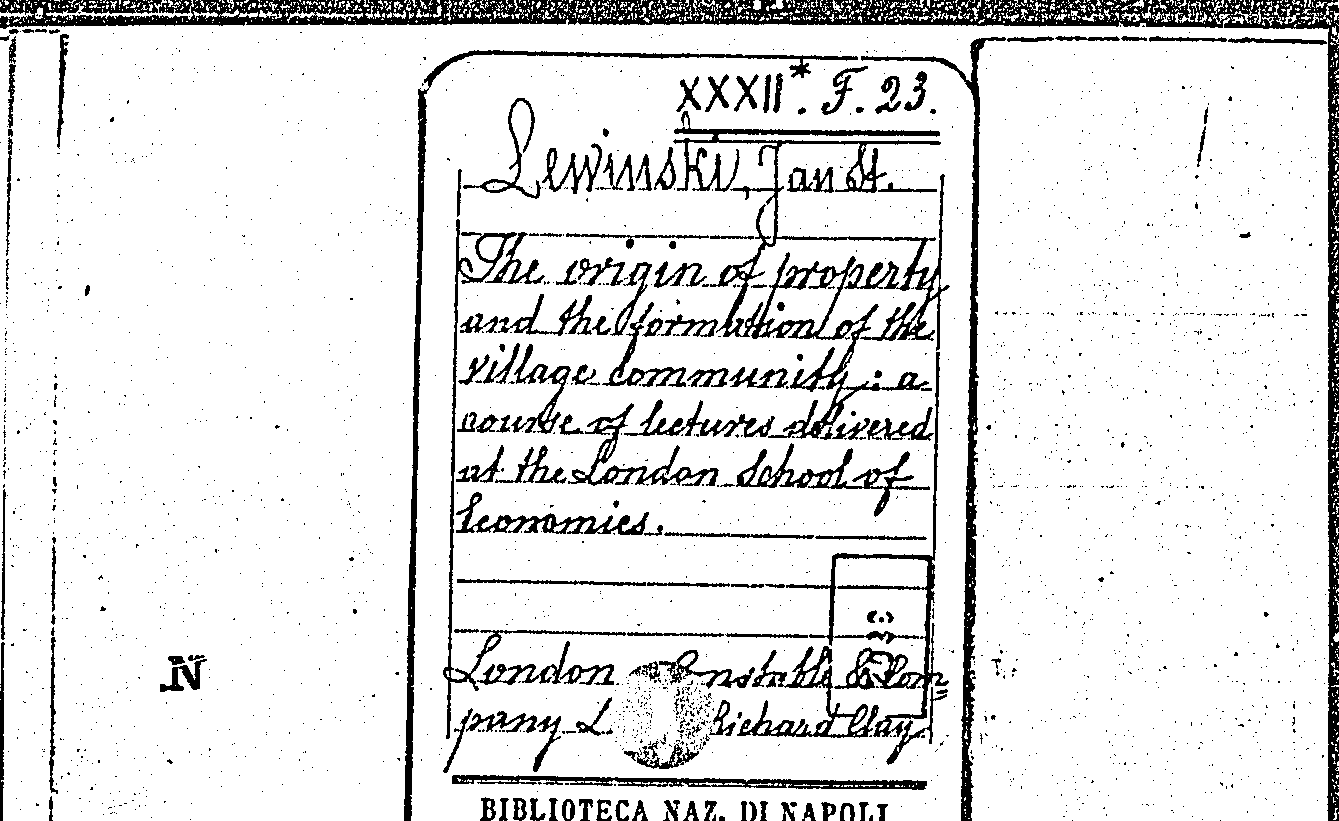 XXXII*. F. 23.
Lewinski, Jan St.
The origin of property
and the formation of the
village community : a
course of lectures delivered
at the London School of
Economics.
London Constable & Com=
pany L. Richard Clay
BIBLIOTECA NAZ. DI NAPOLI
N